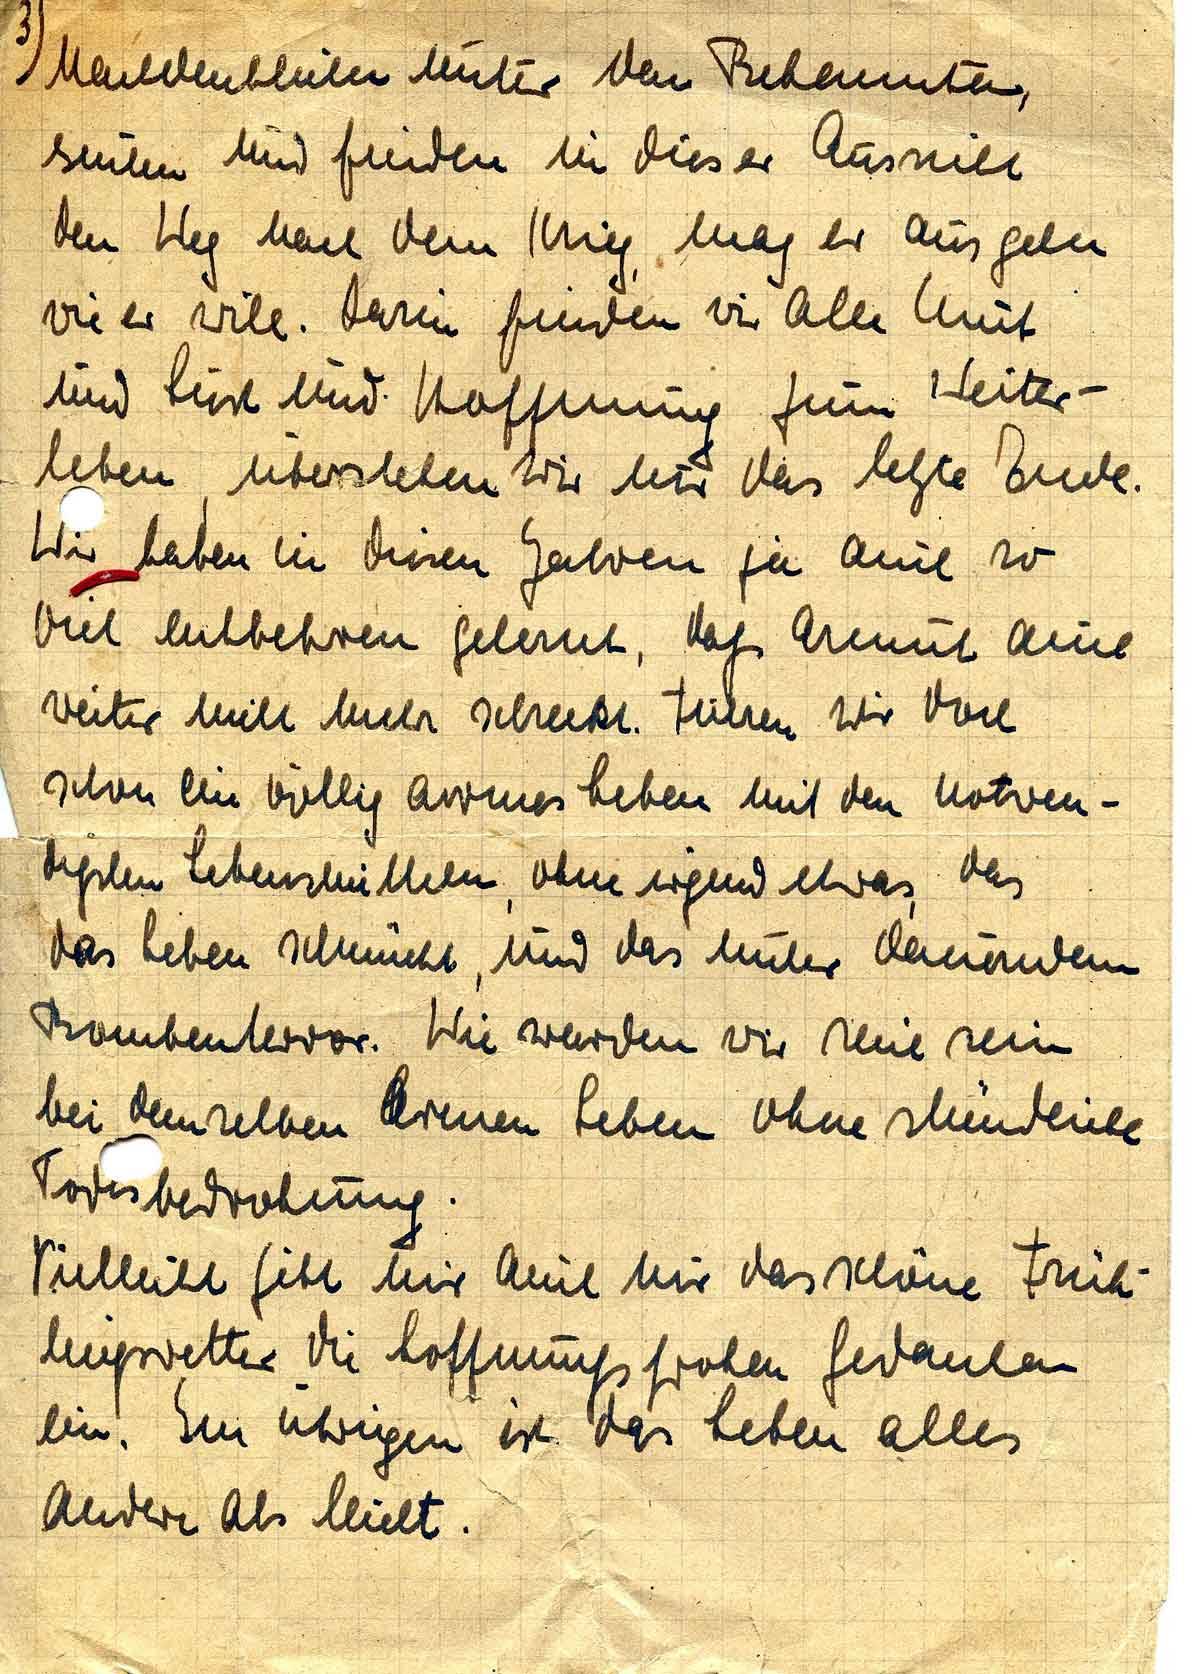 3)
Nachdenklichen unter den Bekannten,
suchen und finden in dieser Aussicht
den Weg nach dem Krieg, mag er ausgehen
wie er will. Darin finden wir alle Mut
und Lust und Hoffnung zum Weiter-
leben, überstehen wir nur das letzte Ende.
Wir haben in diesen Jahren ja auch so
viel entbehren gelernt, daß Armut auch
weiter nicht mehr schreckt. Führen wir doch
schon ein völlig armes Leben mit den notwen-
digsten Lebensmitteln, ohne irgend etwas, das
das Leben schmückt, und das unter dauerndem
Bombenterror. Wie werden wir reich sein
bei demselben armen Leben ohne stündliche
Todesbedrohung.
Vielleicht gibt mir auch nur das schöne Früh-
lingswetter die hoffnungsfrohen Gedanken
ein. Im übrigen ist das Leben alles
andere als leicht.